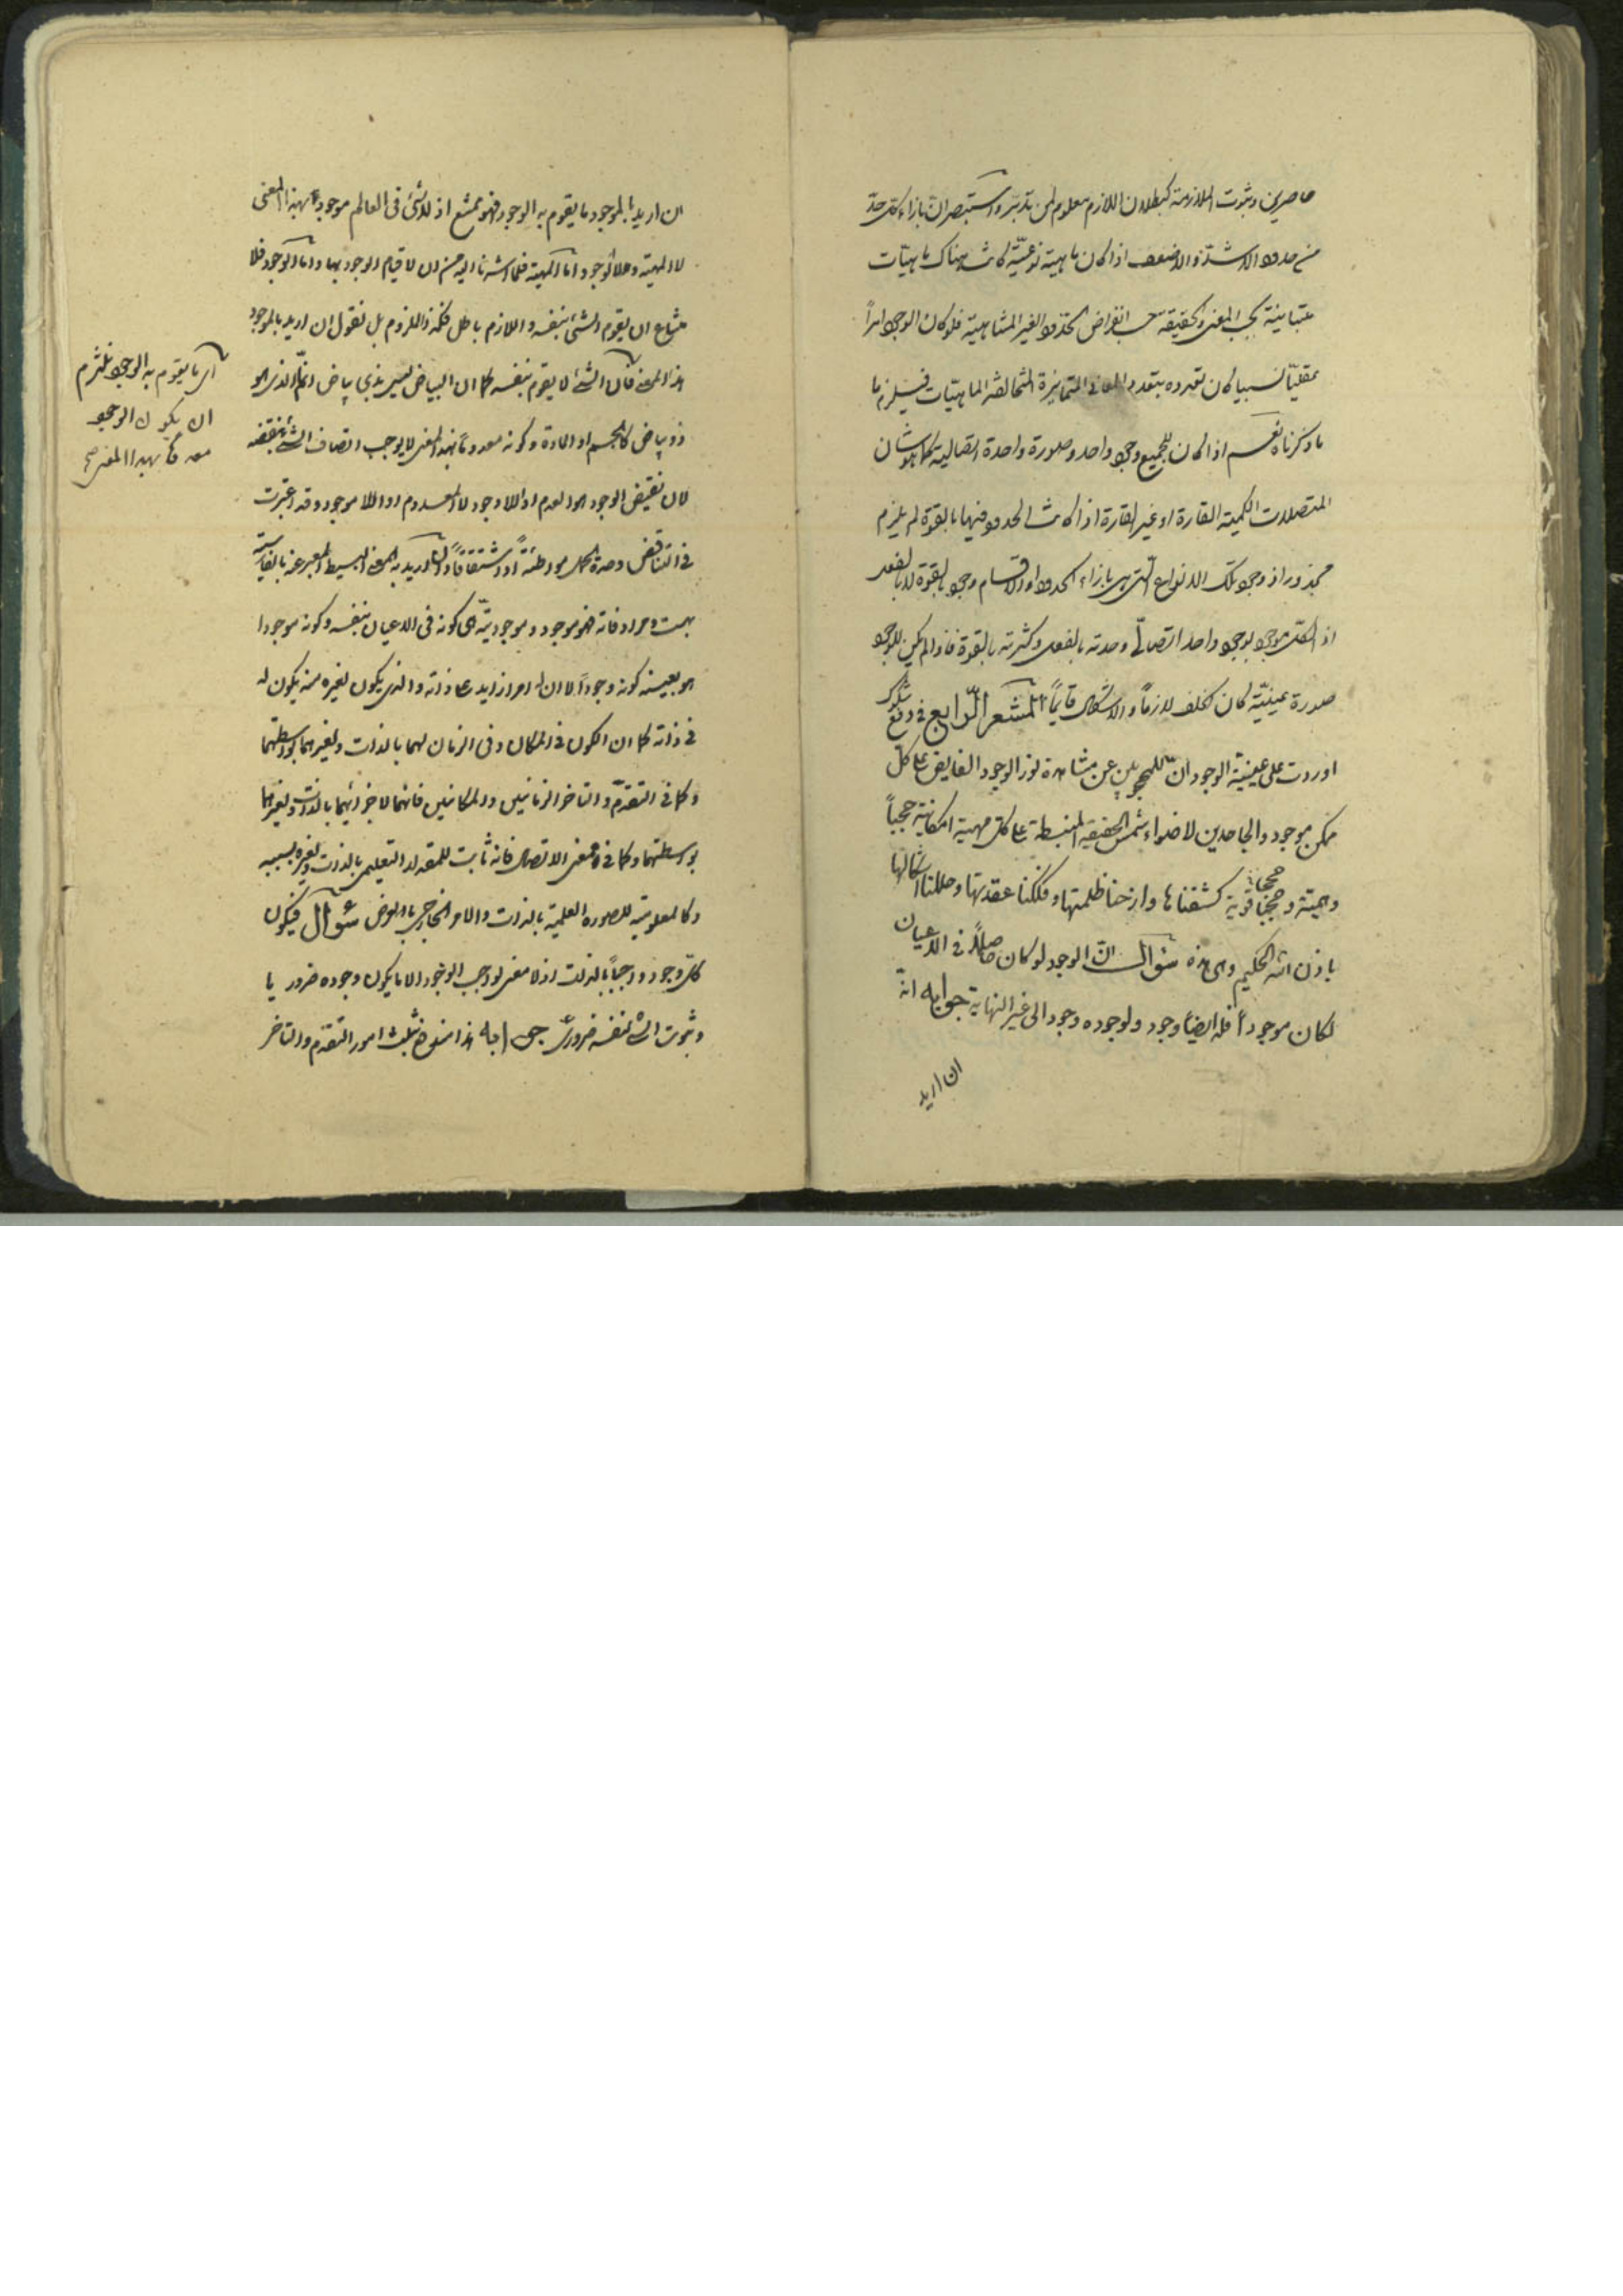 حاصرين وثبوت الملازمة كبطلان اللازم معلوم لمن تدبّر واستبصر انّ بازاء كل حدّ
من حدود الاشدّ والاضعف اذا كان ماهية نوعيّة كانت هناك ماهيّات
متباينة بحسب المعنى والحقيقة حسب انفراض الحدود الغير المتناهية فلو كان الوجود امراً
عقليّاً نسبيا كان تعدده بتعدد المعانى المتمايزة المتخالفة الماهيّات فيلزم ما
ما ذكرناه نعم اذا كان للجميع وجود واحد وصورة واحدة اتصالية كما هو شان
المتصلات الكمية القارة او غير القارة اذا كانت الحدود فيها بالقوة لم يلزم
محذور اذ وجود تلك الانواع التى هى بازاء الحدود او الاقسام وجود بالقوة لا بالفعل
اذ الكل موجود بوجود واحد اتصالى وحدته بالفعل وكثرته بالقوة فاذا لم يكن للوجود
صورة عينيّة كان الخلف لازماً والاشكال قايماً المشعر الرّابع فى دفع شكوك
اوردت على عينيّة الوجود انّ للمحجوبين عن مشاهدة نور الوجود الفايض على كل
ممكن موجود والجاحدين لاضواء شمس الحقيقة المنبسطة على كل مهية امكانية حججاً
وهمية و حججا قوية كشفناها وازحنا ظلمتها وفككنا عقدتها وحللنا اشكالها
باذن الله الحكيم وهى هذه سؤال انّ الوجود لو كان حاصلاً فى الاعيان
لكان موجوداً فله ايضاً وجود ولوجوده وجود الى غير النهاية جوابه انّه
ان اريد
ان اريد بالموجود ما يقوم به الوجود فهو ممتنع اذ لا شئ فى العالم موجودا بهذا المعنى
لا المهية ولا الوجود اما المهية فلما اشرنا اليه من ان لا قيام للوجود بها واما الوجود فلا
متناع ان يقوم الشئ بنفسه واللازم باطل فكذا الملزوم بل نقول ان اريد بالموجود
هذا المعنى فانّ الشئ لا يقوم بنفسه كما ان البياض ليس بذى بياض وانّما الذى هو
ذو بياض كالجسم او المادة وكونه معدوماً بهذا المعنى لا يوجب اتصاف الشئ بنقيضه
لان نقيض الوجود هو العدم او اللا وجود لا المعدوم او اللا موجود وقد اعتبرت
فى التناقض وحدة الحمل مواطئةً او اشتقاقاً وان اريد به المعنى البسيط المعبر عنه بالفارسيّة
بهست ومرادفاته فهو موجود وموجوديّته هى كونه فى الاعيان بنفسه وكونه موجودا
هو بعينه كونه وجوداً لا ان له امر زايد على ذاته والذى يكون لغيره منه يكون له
فى ذاته كما ان الكون فى المكان وفى الزمان لهما بالذات ولغيرهما بواسطتهما
وكما فى التقدّم والتاخر الزمانيين والمكانيين فانّهما لاجزائهما بالذات ولغيرهما
بواسطتهما وكما فى معنى الاتصال فانه ثابت للمقدار التعليمى بالذات ولغيره بسببه
وكالمعلومية للصورة العلمية بالذات وللامر الخارجى بالعرض سؤال فيكون
كل وجود واجباً بالذات اذ لا معنى لواجب الوجود الا ما يكون وجوده ضروريا
وثبوت الشئ لنفسه ضرورى جوابه هذا مندفع بثلث امور التقدّم والتاخر
اى ما يقوم به الوجود نلتزم
ان يكون الوجود
معدوما بهذا المعنى صح